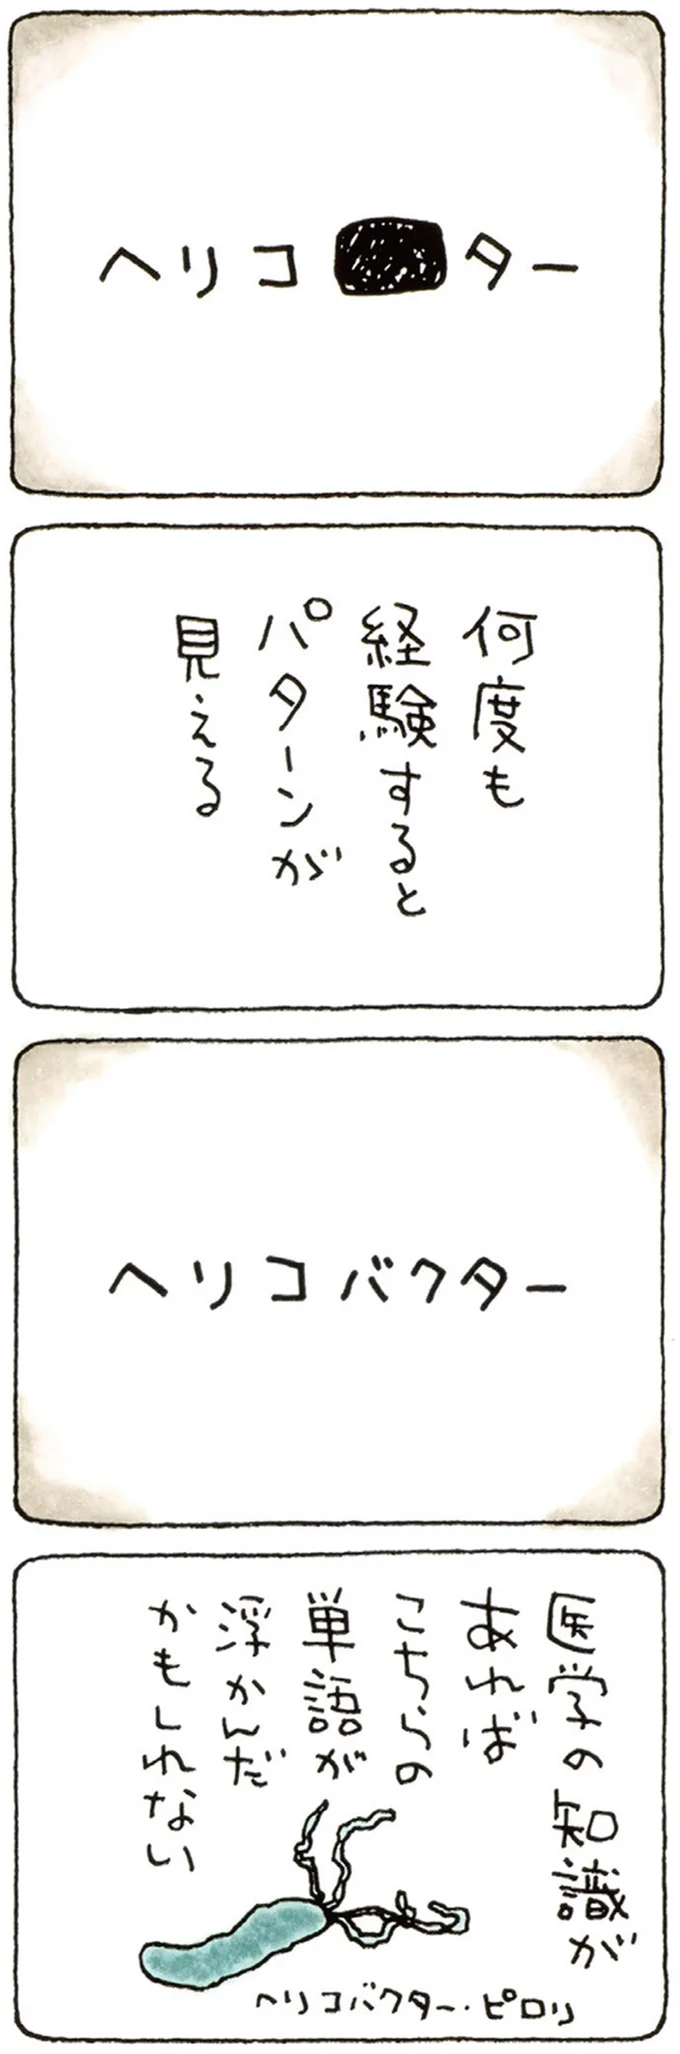 ヘリコ ター
何度も
経験すると
パターンが
見える
ヘリコバクター
医学の知識が
あれば
こちらの
単語が
浮かんだ
かもしれない
ヘリコバクター・ピロリ